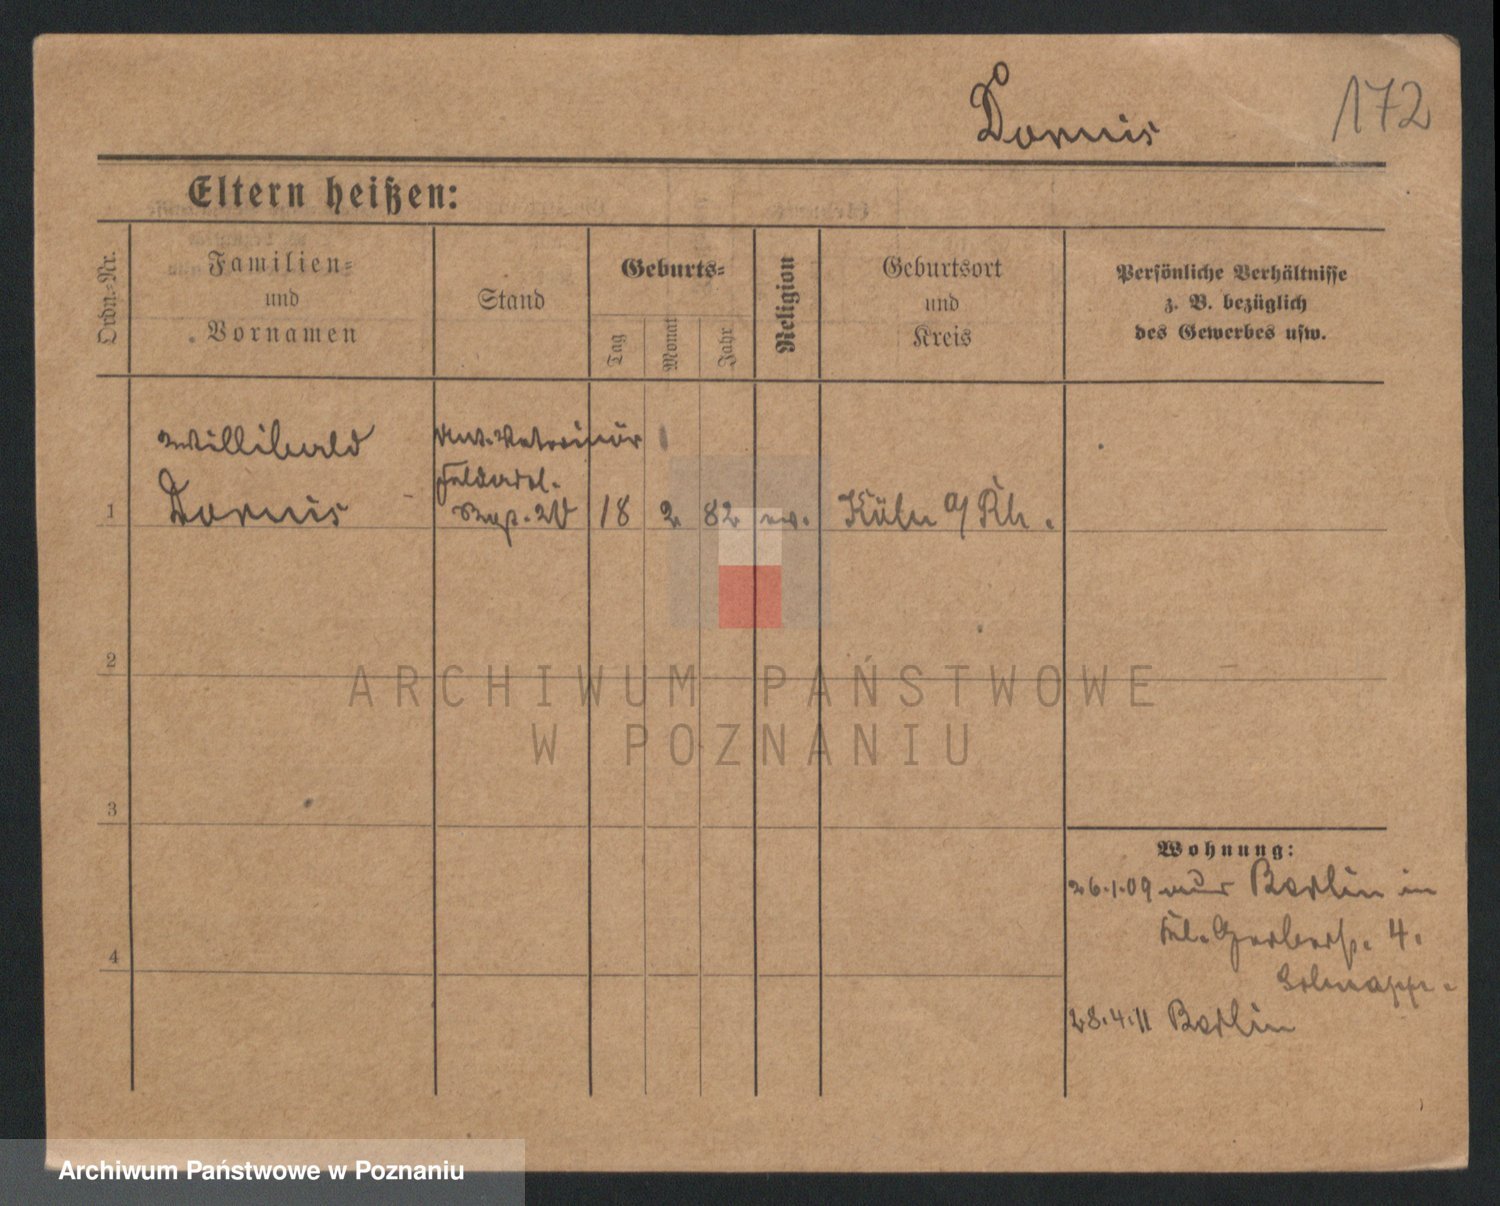 Dornis 172
Eltern heißen:
Ordn.-Nr.
Familien-
und
Vornamen
Stand
Geburts-
Tag
Monat
Jahr
Religion
Geburtsort
und
Kreis
Persönliche Verhältnisse
z. B. bezüglich
des Gewerbes usw.
Willibald
Unt. Veterinär
Feldartl.
1 Dornis Regt. 20 18 2 82 ev. Köln a/Rh.
2
ARCHIWUM PAŃSTWOWE
W POZNANIU
3
Wohnung:
26.1.09 aus Berlin in
Gerberstr. 4.
4
28.4.11 Berlin
Archiwum Państwowe w Poznaniu